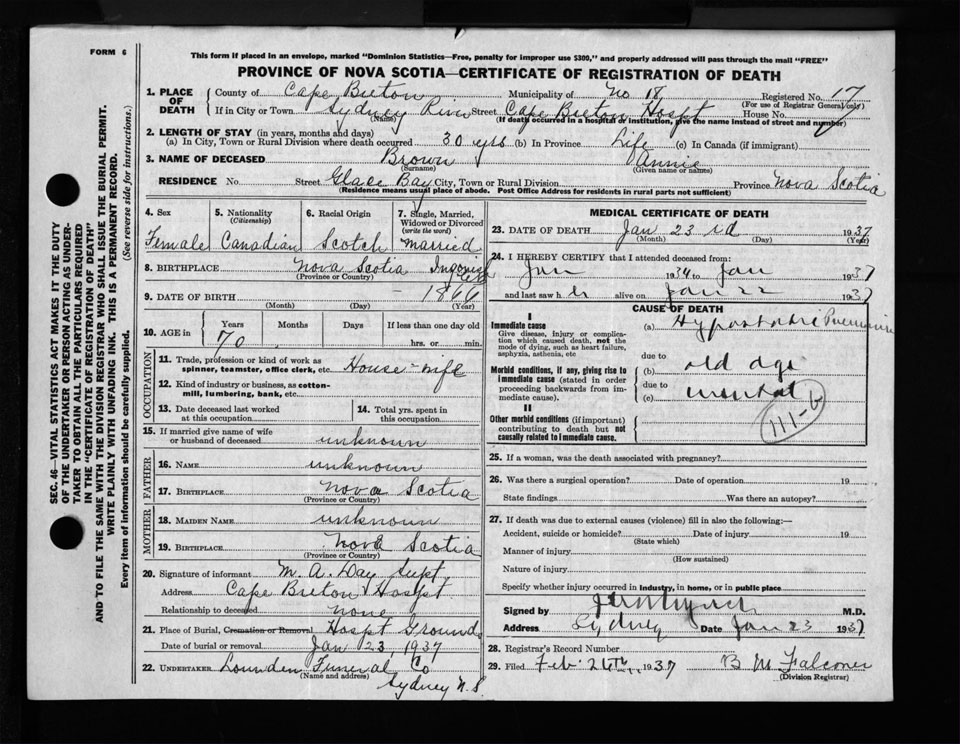 FORM 6
This form if placed in an envelope, marked "Dominion Statistics—Free, penalty for improper use $300," and properly addressed will pass through the mail "FREE"
PROVINCE OF NOVA SCOTIA—CERTIFICATE OF REGISTRATION OF DEATH
SEC. 46—VITAL STATISTICS ACT MAKES IT THE DUTY
OF THE UNDERTAKER OR PERSON ACTING AS UNDER-
TAKER TO OBTAIN ALL THE PARTICULARS REQUIRED
IN THE "CERTIFICATE OF REGISTRATION OF DEATH"
AND TO FILE THE SAME WITH THE DIVISION REGISTRAR WHO SHALL ISSUE THE BURIAL PERMIT.
WRITE PLAINLY WITH UNFADING INK. THIS IS A PERMANENT RECORD.
Every item of information should be carefully supplied. (See reverse side for instructions.)
1. PLACE OF DEATH
County of Cape Breton Municipality of No 18 Registered No. 17
(For use of Registrar General only)
If in City or Town Sydney River Street Cape Breton Hospt House No.
(Name) (If death occurred in a hospital or institution, give the name instead of street and number)
2. LENGTH OF STAY (in years, months and days)
(a) In City, Town or Rural Division where death occurred 30 yrs (b) In Province Life (c) In Canada (if immigrant)
3. NAME OF DECEASED Brown Annie
(Surname) (Given name or names)
RESIDENCE No. Street Glace Bay City, Town or Rural Division Province Nova Scotia
(Residence means usual place of abode. Post Office Address for residents in rural parts not sufficient)
4. Sex 5. Nationality 6. Racial Origin 7. Single, Married,
(Citizenship) Widowed or Divorced
(write the word)
Female Canadian Scotch Married
8. BIRTHPLACE Nova Scotia Ingonish
(Province or Country)
9. DATE OF BIRTH 1866
(Month) (Day) (Year)
10. AGE in Years Months Days If less than one day old
70 hrs. or min.
OCCUPATION
11. Trade, profession or kind of work as
spinner, teamster, office clerk, etc. House-wife
12. Kind of industry or business, as cotton-
mill, lumbering, bank, etc.
13. Date deceased last worked at this occupation 14. Total yrs. spent in this occupation
15. If married give name of wife
or husband of deceased unknown
FATHER
16. NAME unknown
17. BIRTHPLACE Nova Scotia
(Province or Country)
MOTHER
18. MAIDEN NAME unknown
19. BIRTHPLACE Nova Scotia
(Province or Country)
20. Signature of informant M. A. Day Supt
Address Cape Breton Hospt
Relationship to deceased none
21. Place of Burial, Cremation or Removal Hospt Grounds
Date of burial or removal Jan 23, 1937
22. UNDERTAKER Lounden Funeral Co
(Name and address) Sydney N.S.
MEDICAL CERTIFICATE OF DEATH
23. DATE OF DEATH Jan 23 rd 1937
(Month) (Day) (Year)
24. I HEREBY CERTIFY that I attended deceased from:
Jan 1934 to Jan 1937
and last saw h er alive on Jan 22 1937
CAUSE OF DEATH
I
Immediate cause
Give disease, injury or complica-
tion which caused death, not the
mode of dying, such as heart failure,
asphyxia, asthenia, etc
(a) Hypostatic Pneumonia
due to
Morbid conditions, if any, giving rise to
immediate cause (stated in order
proceeding backwards from im-
mediate cause).
(b) old age
due to
(c) mental
111-b
II
Other morbid conditions (if important)
contributing to death but not
causally related to immediate cause.
25. If a woman, was the death associated with pregnancy?
26. Was there a surgical operation? Date of operation 19
State findings Was there an autopsy?
27. If death was due to external causes (violence) fill in also the following:—
Accident, suicide or homicide? Date of injury 19
(State which)
Manner of injury
(How sustained)
Nature of injury
Specify whether injury occurred in industry, in home, or in public place
Signed by M.D.
Address Sydney Date Jan 23 1937
28. Registrar's Record Number
29. Filed Feb. 24th 1937 B M Falconer
(Division Registrar)